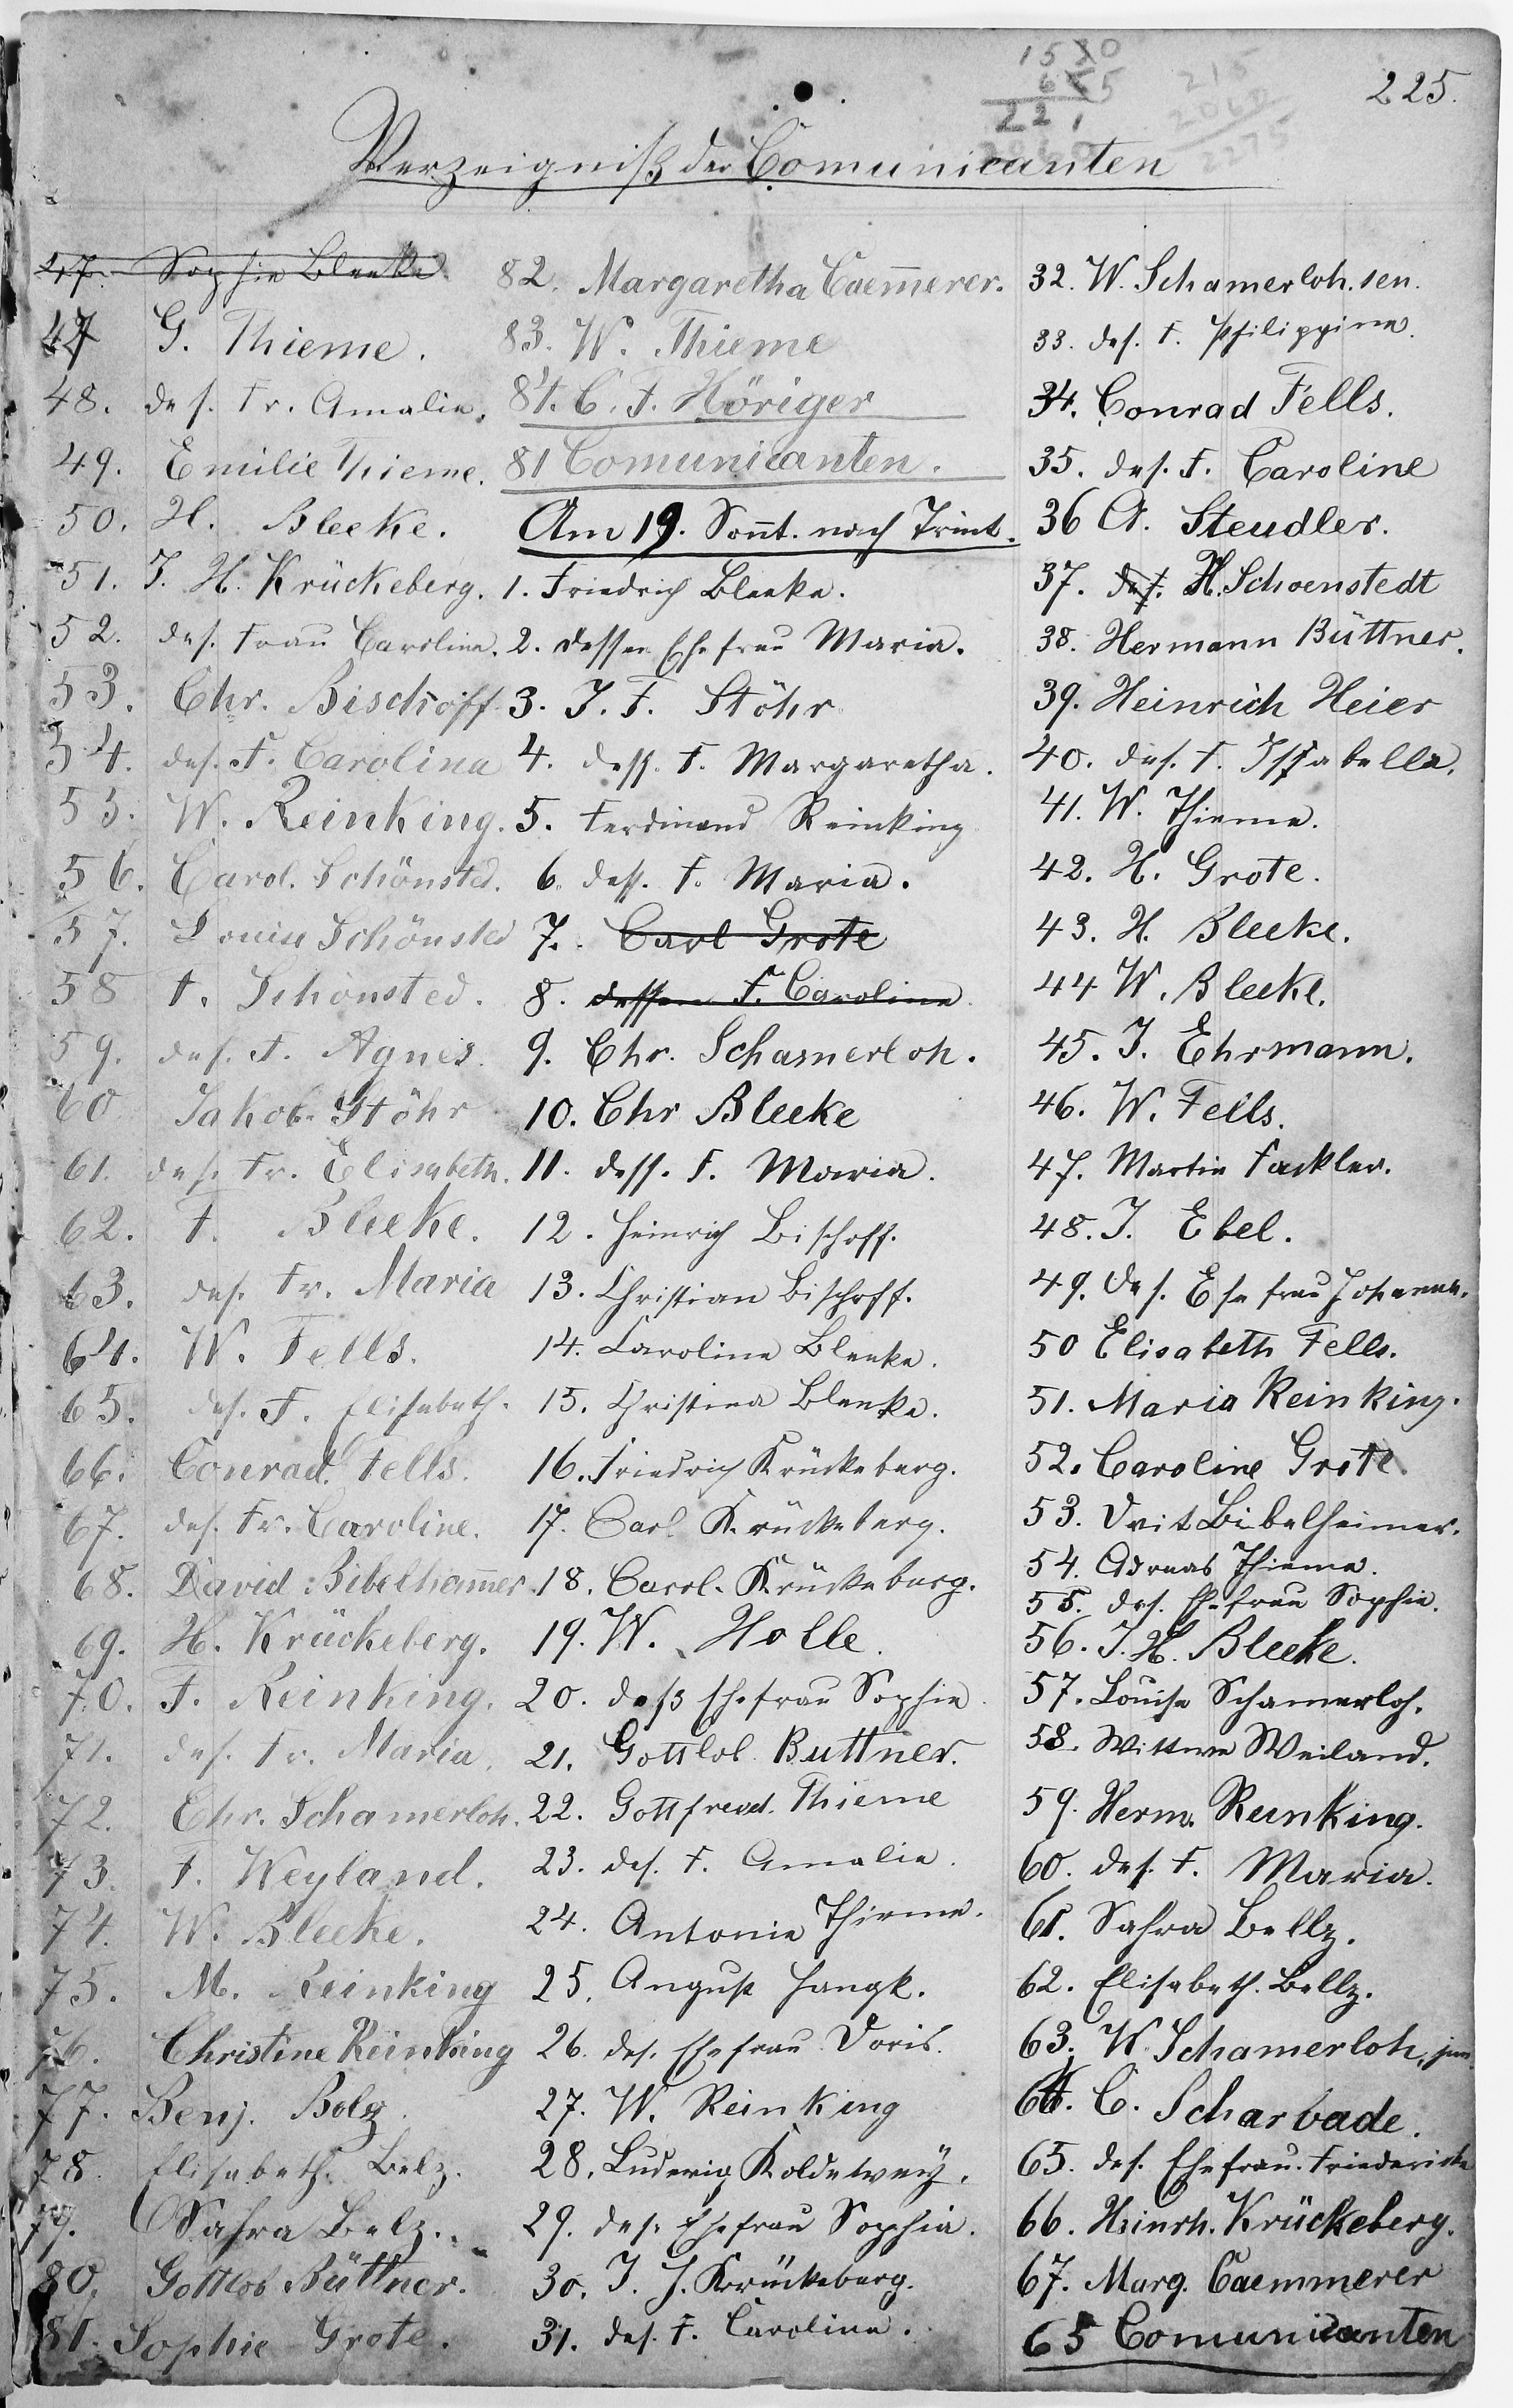 225.
15 10
6 5 5
22 1
215
2060
2275
Verzeigniß der Comunicanten
47. Sophie Bleeke
47 G. Thieme.
48. des. Fr. Amalie.
49. Emilie Thieme.
50. H. Bleeke.
51. J. H. Krückeberg.
52. des. Frau Caroline.
53. Chr. Bischoff
54. des. F. Carolina
55. W. Reinking.
56. Carol. Schönsted.
57. Louise Schönsted
58 F. Schönsted.
59. des. F. Agnes.
60 Jakob Stöhr
61. des. Fr. Elisabeth.
62. F. Bleeke.
63. des. Fr. Maria
64. W. Fells.
65. des. F. Elisabeth.
66. Conrad Fells.
67. des. Fr. Caroline.
68. David Bibelham̄er
69. H. Krückeberg.
70. F. Reinking.
71. des. Fr. Maria.
72. Chr. Schamerloh.
73. F. Weyland.
74. W. Bleeke.
75. M. Reinking
76. Christine Reinking
77. Benj. Bolz
78. Elisabeth. Belz.
79. Sahra Belz.
80. Gottlob Büttner.
81. Sophie Grote.
82. Margaretha Caem̄erer.
83. W. Thieme
84. C. F. Höriger
81 Comunicanten.
Am 19. Son̄t. nach Trint.
1. Friedrich Bleeke.
2. dessen Ehefrau Maria.
3. J. F. Stöhr
4. dess. F. Margaretha.
5. Ferdinand Reinking
6. dess. F. Maria.
7. Carl Grote
8. dessen F. Caroline
9. Chr. Schamerloh.
10. Chr Bleeke
11. dess. F. Maria.
12. Heinrich Bischoff.
13. Christian Bischoff.
14. Caroline Bleeke.
15. Christina Bleeke.
16. Friedrich Krückeberg.
17. Carl Krückeberg.
18. Carol. Krückeberg.
19. W. Holle.
20. deß Ehefrau Sophie.
21. Gottlob Buttner.
22. Gottfried Thieme
23. des. F. Amalie.
24. Antonie Thieme.
25. August Hangk.
26. des. Ehefrau Doris.
27. W. Reinking
28. Ludewig Koldewey.
29. des. Ehefrau Sophia.
30. J. H. Krückeberg.
31. des. F. Caroline.
32. W. Schamerloh. sen.
33. des. F. Philippine.
34. Conrad Fells.
35. des. F. Caroline
36 A. Steudler.
37. des. H. Schoenstedt
38. Hermann Büttner.
39. Heinrich Heier
40. des. F. Issabella.
41. W. Thieme.
42. H. Grote.
43. H. Bleeke.
44 W. Bleeke.
45. J. Ehrmann.
46. W. Fells.
47. Martin Fackler.
48. J. Ebel.
49. des. Ehefrau Johanna.
50 Elisabeth Fells.
51. Maria Reinking.
52. Caroline Grote.
53. Bibelheimer.
54. Thieme.
55. des. Ehefrau Sophie.
56. J. H. Bleeke.
57. Louise Schamerloh.
58. Wittwe Weiland.
59. Herm. Reinking.
60. des. F. Maria.
61. Sahra Bellz.
62. Elisabeth. Bellz.
63. W. Schamerloh, jun.
64. C. Scharbade.
65. des. Ehefrau. Friedericke
66. Heinrh. Krückeberg.
67. Marg. Caemmerer
65 Comunicanten